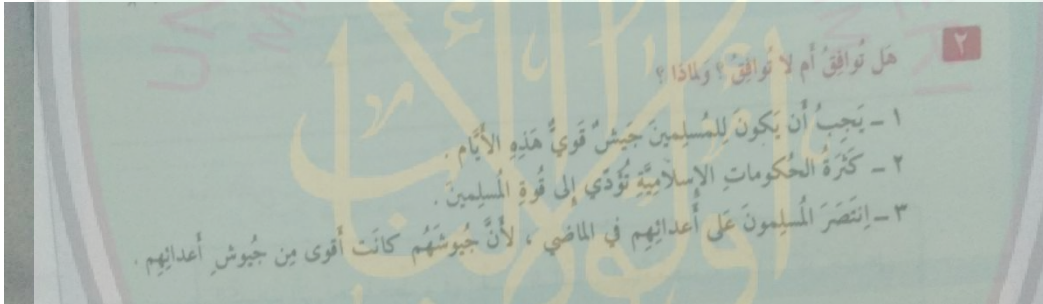 ٢
هَل تُوافِقُ أَم لا تُوافِقُ ؟ وَلماذا ؟
١ ــ يَجِبُ أَن يَكونَ لِلمُسلِمينَ جَيشٌ قَوِيٌّ هَذِهِ الأَيَّام .
٢ ــ كَثرَةُ الحُكوماتِ الإِسلامِيَّةِ تُؤَدّي إِلى قُوةِ المُسلِمينَ .
٣ ــ اِنتَصَرَ المُسلِمونَ عَلى أَعدائِهِم في الماضي ، لأَنَّ جُيوشَهُم كانَت أَقوى مِن جُيوشِ أَعدائِهِم .